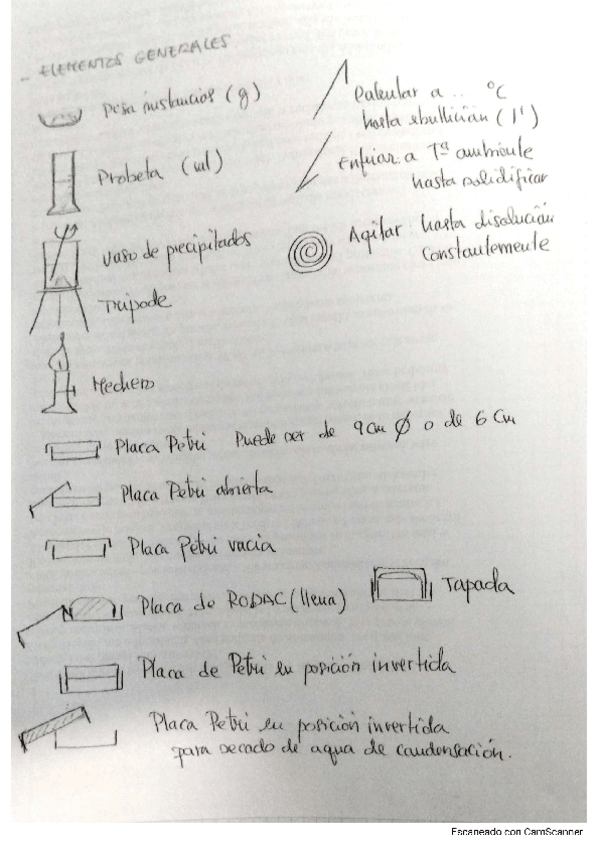 - ELEMENTOS GENERALES
Pesa sustancias (g)
Probeta (ml)
Vaso de precipitados
Trípode
Mechero
Calcular a .. °C
hasta ebullición (1')
Enfriar a Tª ambiente
hasta solidificar
Agitar hasta disolución
Constantemente
Placa Petri Puede ser de 9 cm Ø o de 6 cm
Placa Petri abierta
Placa Petri vacia
Placa de RODAC (llena)
Tapada
Placa de Petri en posición invertida
Placa Petri en posición invertida
para secado de agua de condensación.
Escaneado con CamScanner